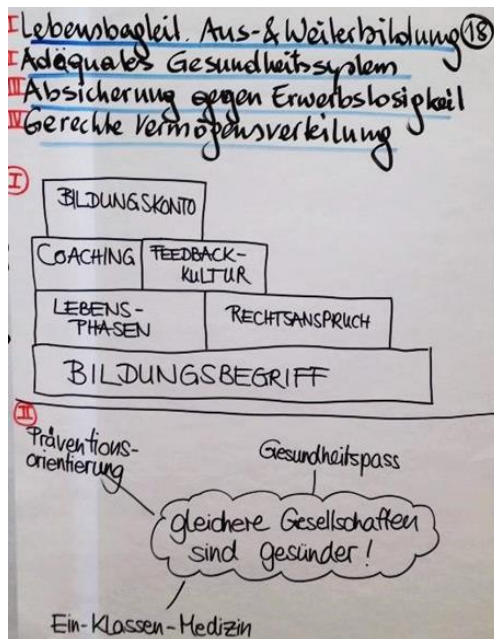 I Lebensbagleit. Aus-& Weiterbildung 18
I Adäquates Gesundheitssystem
III Absicherung gegen Erwerbslosigkeit
IV Gerechte Vermögensverteilung
I
BILDUNGSKONTO
COACHING FEEDBACK-
KULTUR
LEBENS-
PHASEN
RECHTSANSPRUCH
BILDUNGSBEGRIFF
II
Präventions-
orientierung
Gesundheitspass
gleichere Gesellschaften
sind gesünder!
Ein-Klassen-Medizin